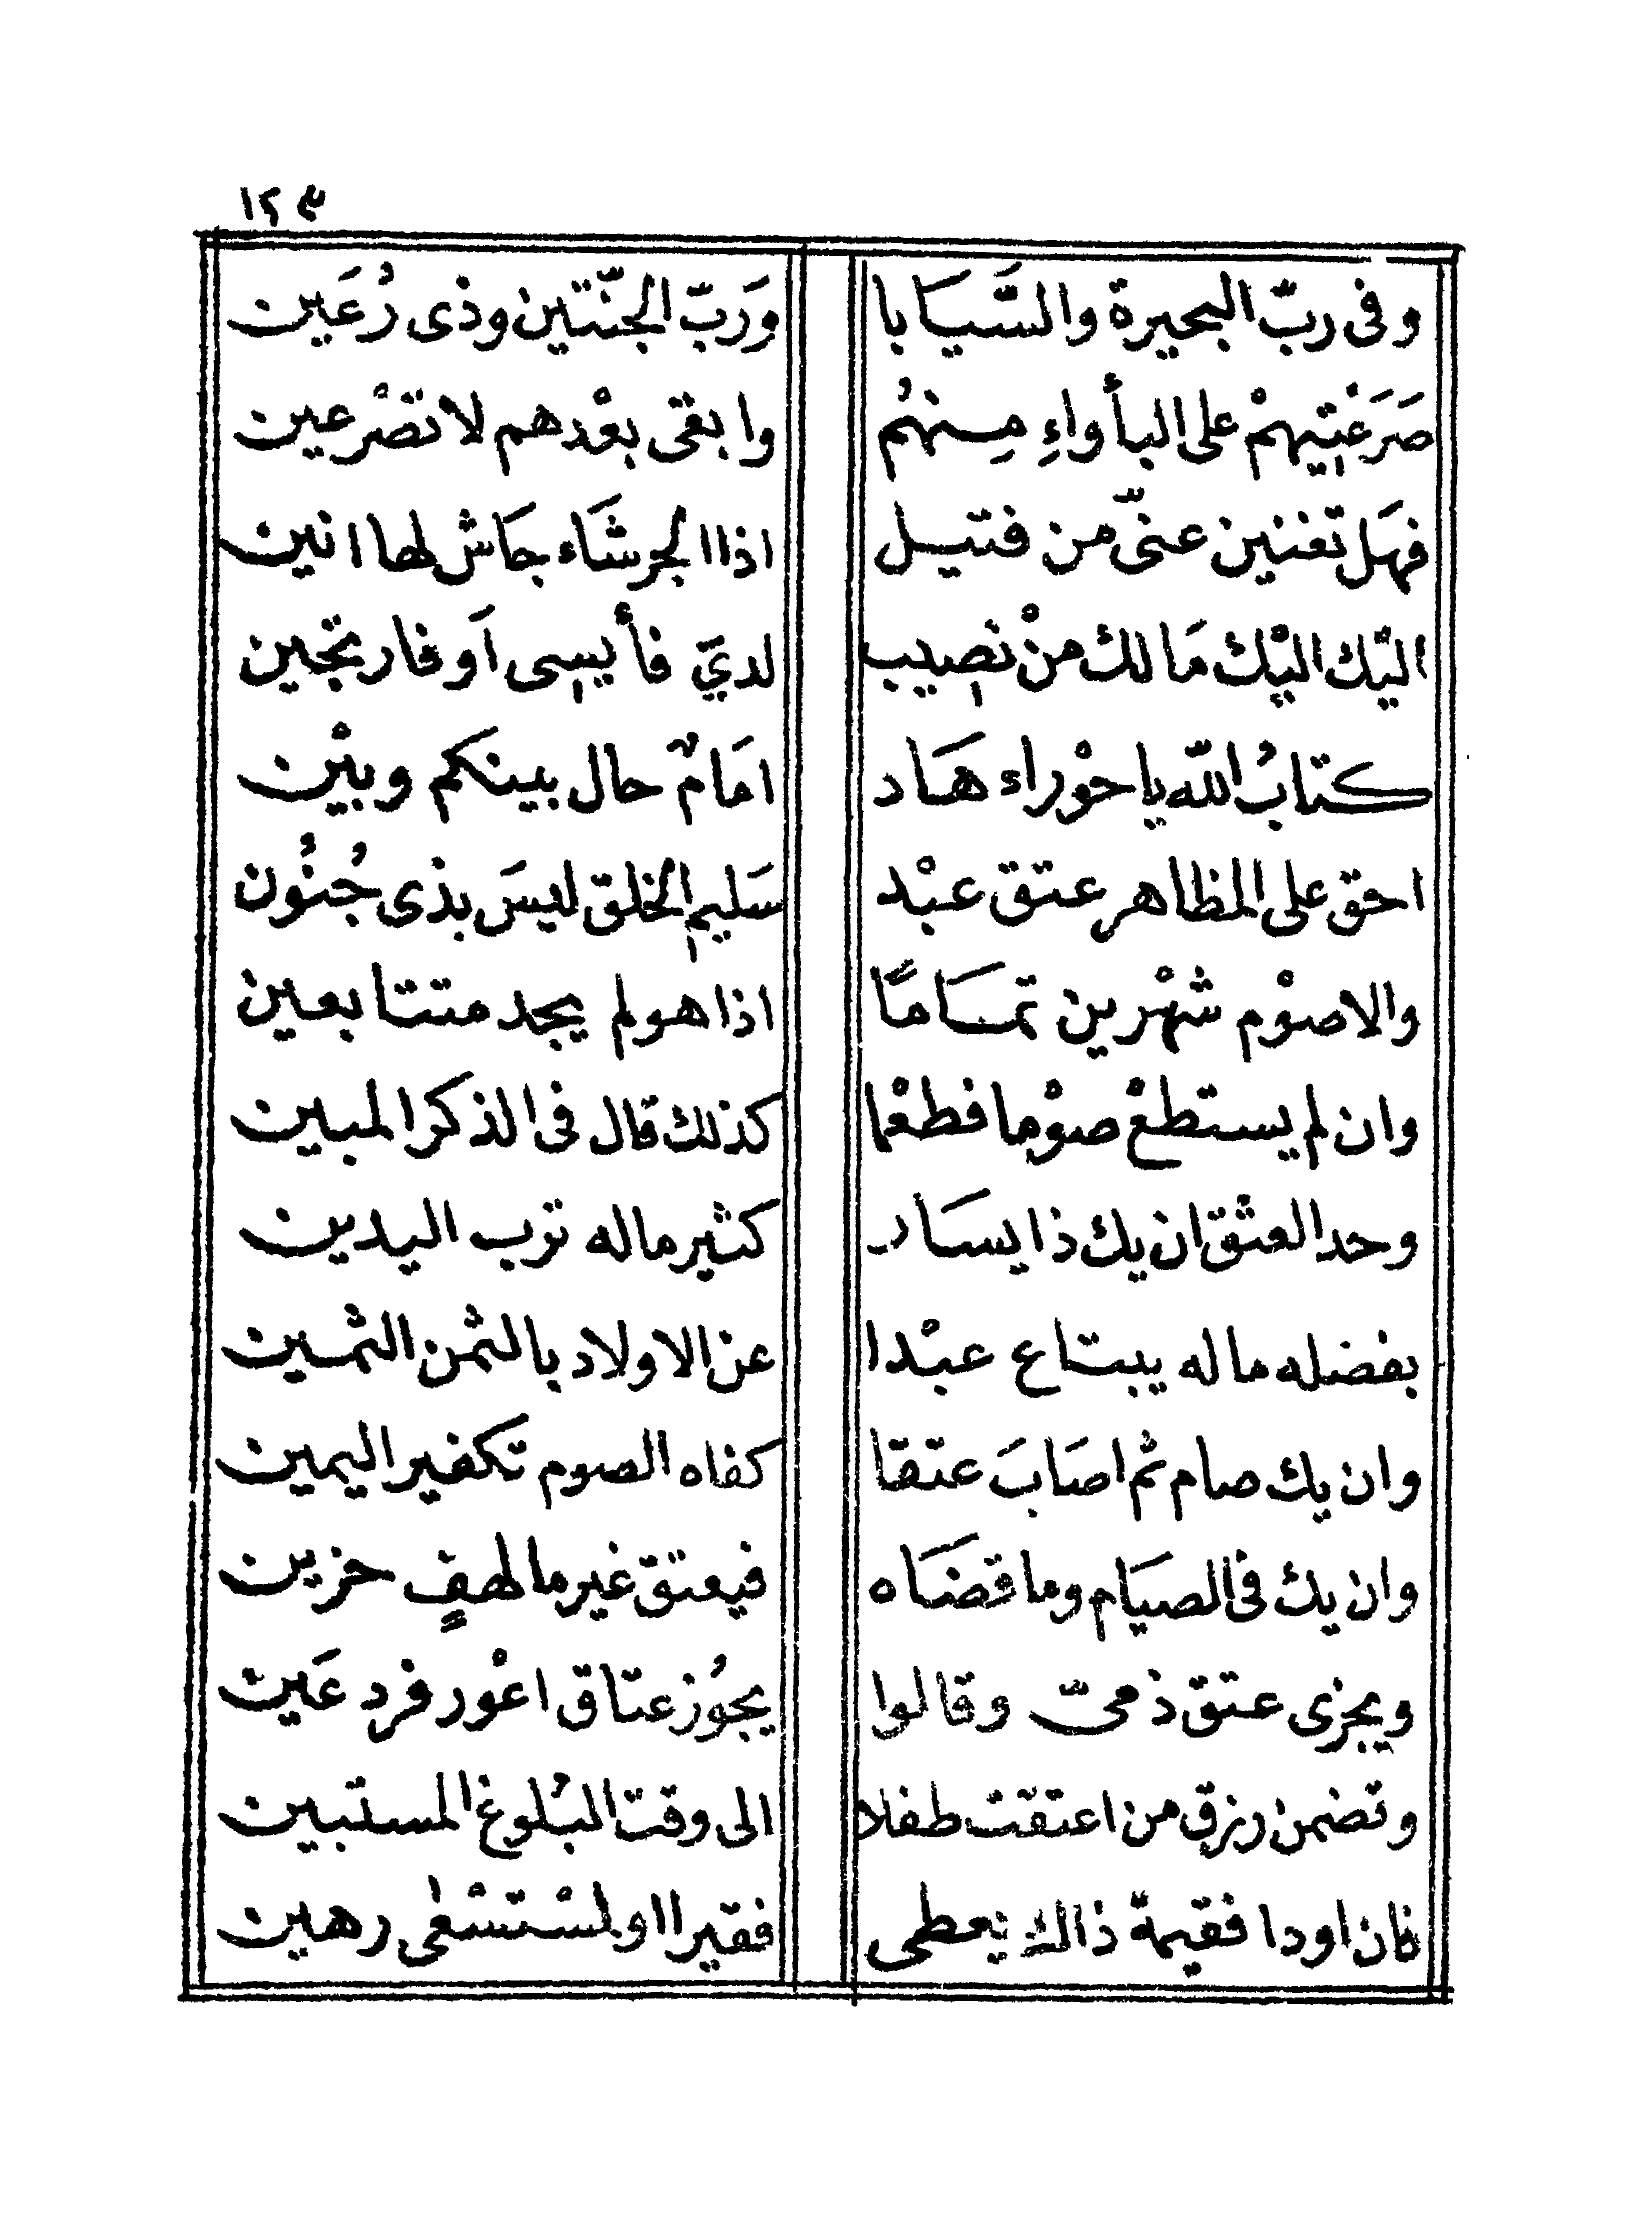 ١٢٣
وفى ربّ البحيرة والسَّبَايا وَرَبّ الجنّتين وذى رُعَين
صَرَعْتِيهمْ على البأواءِ مِنهُم وابقى بعْدهم لا تصْرعين
فهَل تغنين عنّى من فتيل اذا الجرشَاء جَاش لها انين
اليْك اليْك مَالك منْ نصيب لديَّ فأيسى اَو فارتجين
كتابُ الله يا حوْراء هَاد امَامٌ حال بينكم وبيْن
احق على المظاهر عتق عبْد سَليم الخلق ليسَ بذى جُنُون
والا صوْم شهْرين تمَامًا اذا هو لم يجد متتابعين
وان لم يستطعْ صوْما فطعْما كذلك قال فى الذكر المبين
وحد العتْق ان يك ذا يسَار كثير ماله ترب اليدين
بفضله ماله يبتاع عبْدا عن الاولاد بالثمن الثمين
وان يك صام ثم اصَابَ عتقا كفاه الصوم تكفير اليمين
وان يك فى الصيَام وما قضَاه فيعتق غير مالهفٍ حزين
ويجزى عتق ذمىّ وقالوا يجُوز عتاق اعْور فرد عَين
وتضمن رزق من اعتقت طفلا الى وقت البُلوغ المستبين
فان اودا فقيمة ذاك يعطى فقيرا او لمسْتسْعٰى رهين